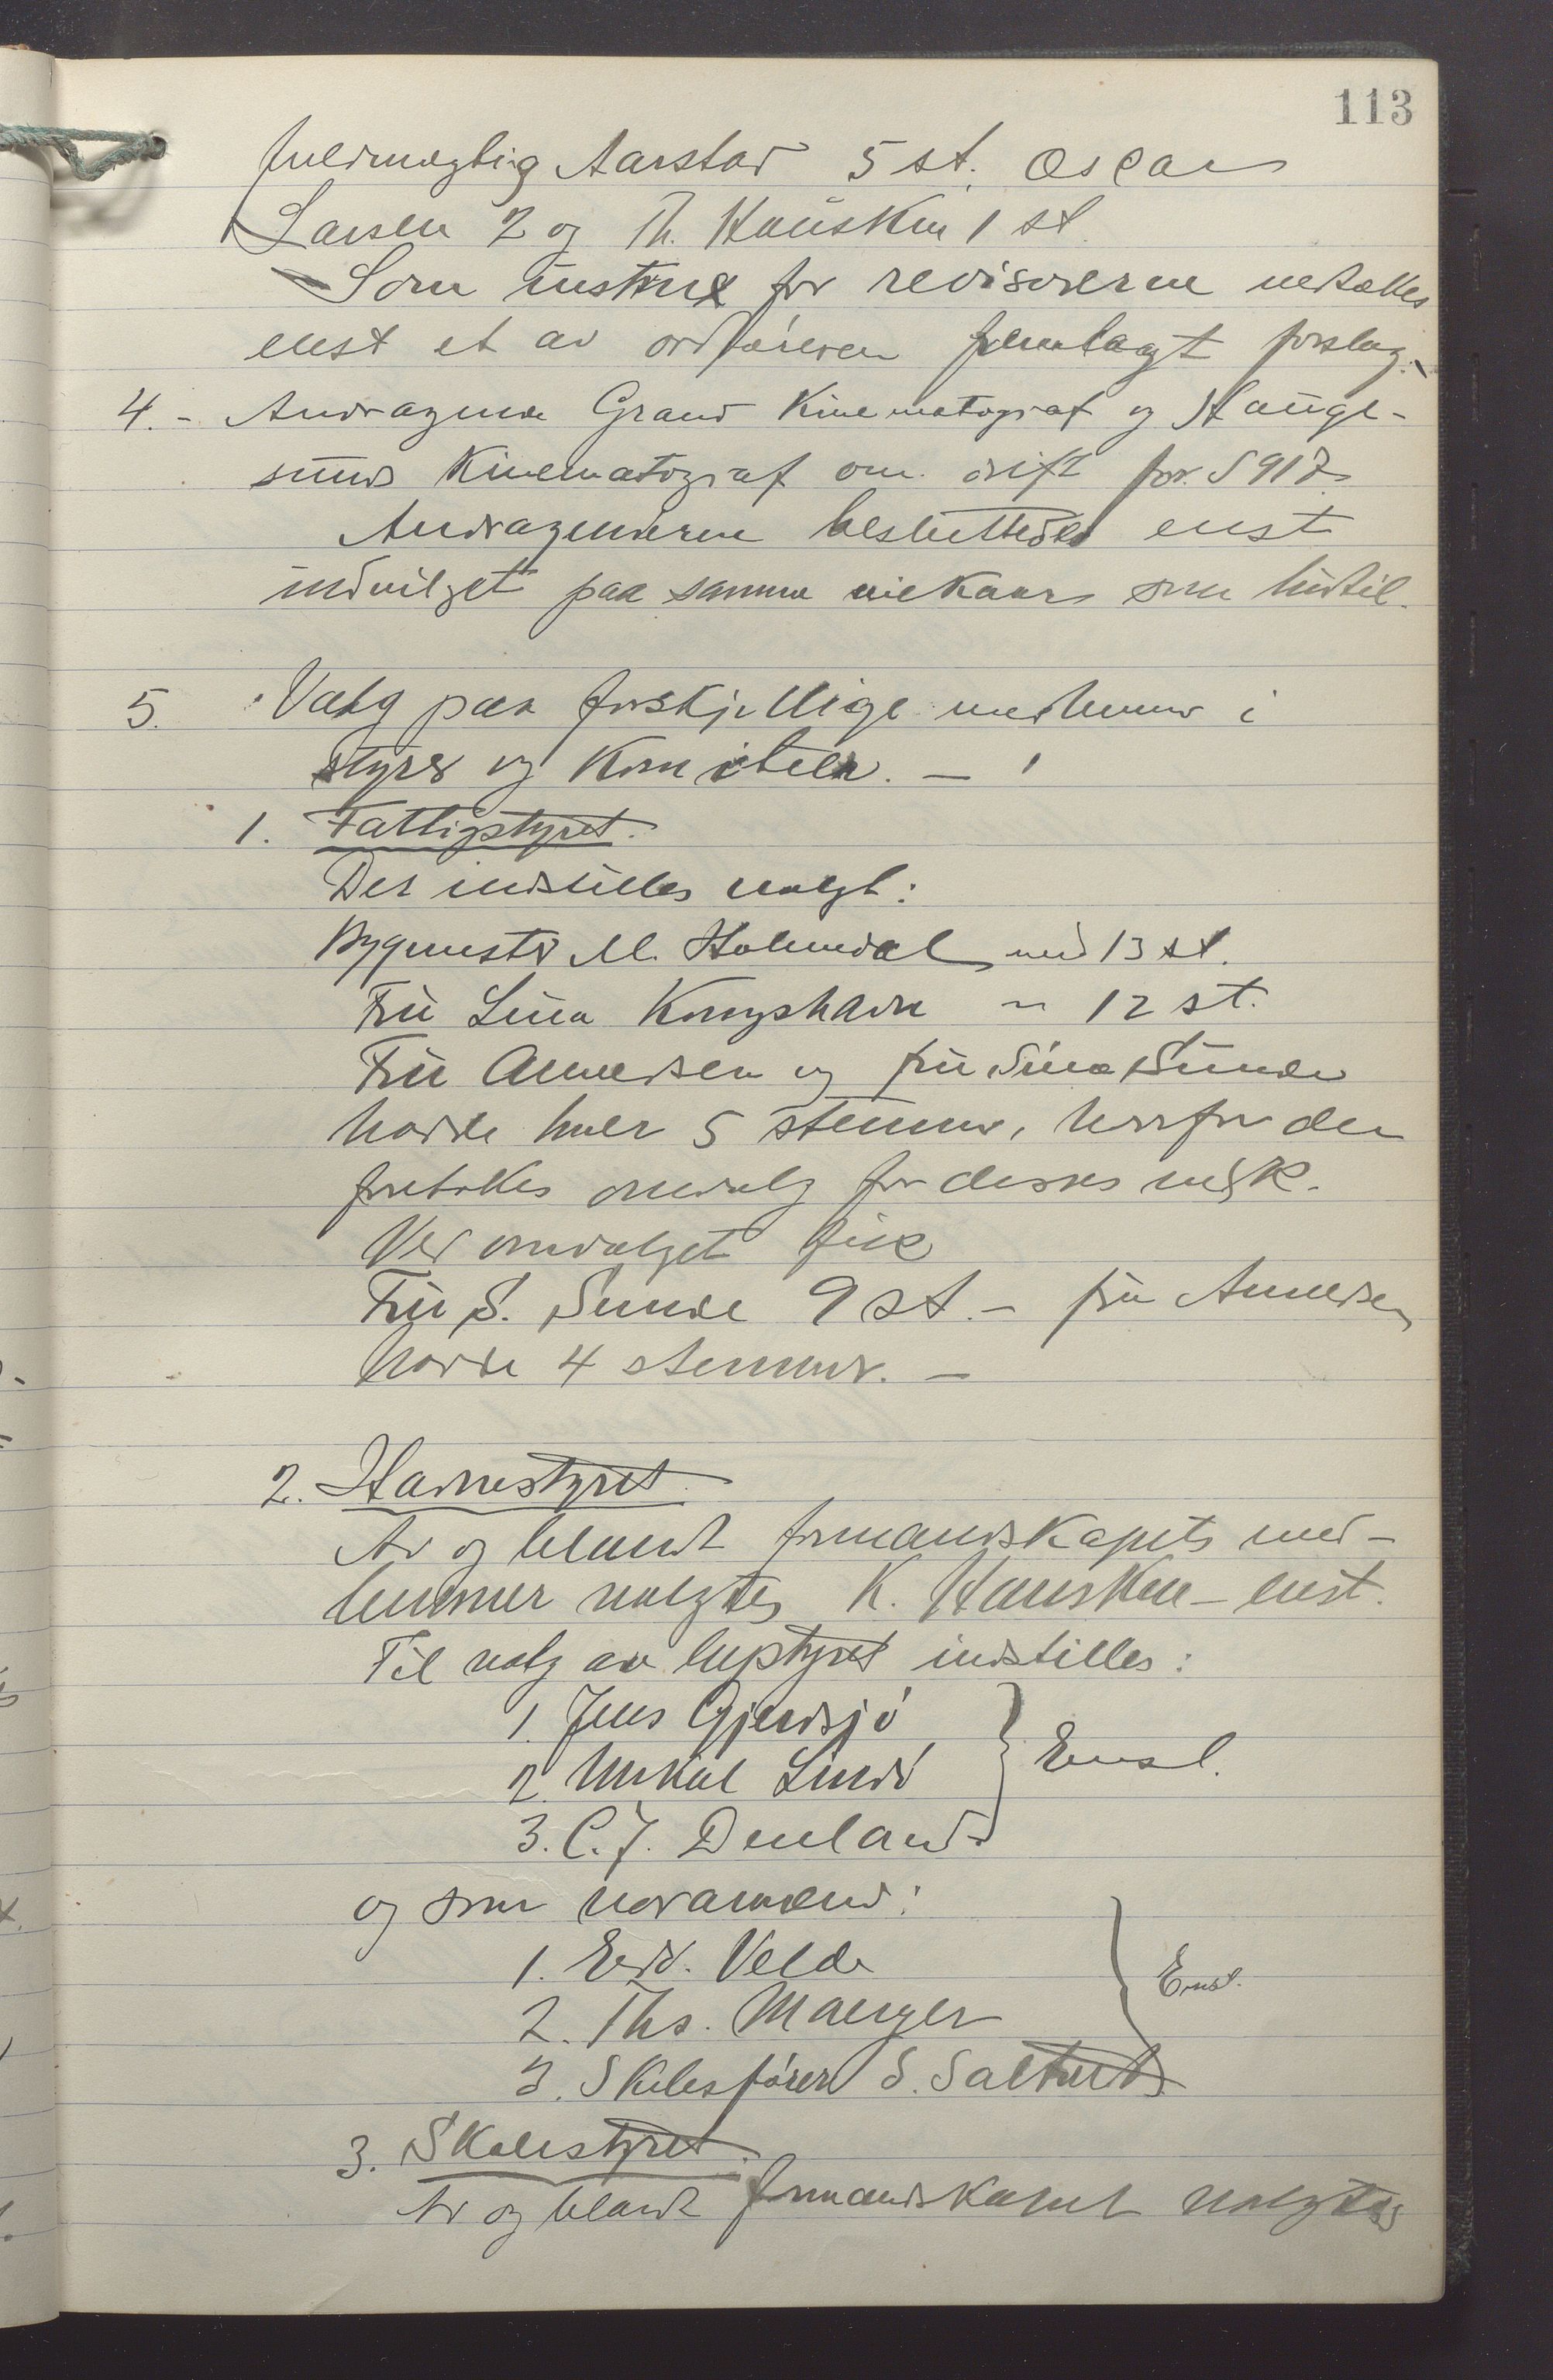 113
fuldmægtig Aarstad 5 st. Oscar
Larsen 2 og Th. Hausken 1 st.
Som instrux for revisorerne vedtokes
enst et av ordføreren fremlagt forslag.
4. - Andragende Grand Kinematograf og Hauge-
sunds Kinematograf om drift for 1917.
Andragenderne besluttedes enst
indvilget paa samme vilkaar som hidtil.
5. Valg paa forskjellige medlemmer i
styrer og komiteer. -
1. Fattigstyret.
Der indstilles valgt:
Bygmester M. Holmedal med 13 st.
Fru Lina Kongshavn " 12 st.
Fru Amundsen og fru Sina Sunde
hadde hver 5 stemmer, hvorfor der
foretokes omvalg for deres
Ved omvalget fik
Fru S. Sunde 9 st. - fru Amundsen
hadde 4 stemmer. -
2. Havnestyret.
Av og blandt formandskapets med-
lemmer valgtes K. Hausken - enst.
Til valg av bystyret indstilles:
1. Jens Gjerdsjø
2. Mikal Lindø } Enst.
3. C. J.
og som varamænd:
1. Edv. Velde
2. Ths. Manger } Enst.
3. Skibsfører S. Saltvedt
3. Skolestyret.
Av og blandt formandskapet valgtes